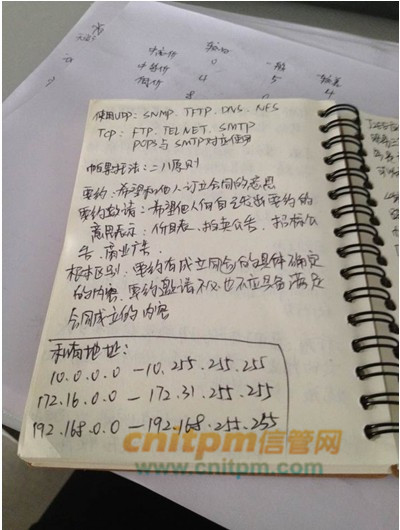 使用UDP: SNMP. TFTP. DNS. NFS
TCP: FTP. TELNET. SMTP
POP3与SMTP对应使用
帕累托法: 二八原则
要约: 希望和他人订立合同的意思
要约邀请: 希望他人向自己发出要约的
意思表示: 价目表、拍卖公告、招标公
告、商业广告、
根本区别: 要约有成立合同的具体确定
的内容, 要约邀请不仅也不应具备满足
合同成立的内容
私有地址:
10.0.0.0 — 10.255.255.255
172.16.0.0 — 172.31.255.255
192.168.0.0 — 192.168.255.255
cnitpm信管网
www.cnitpm.com